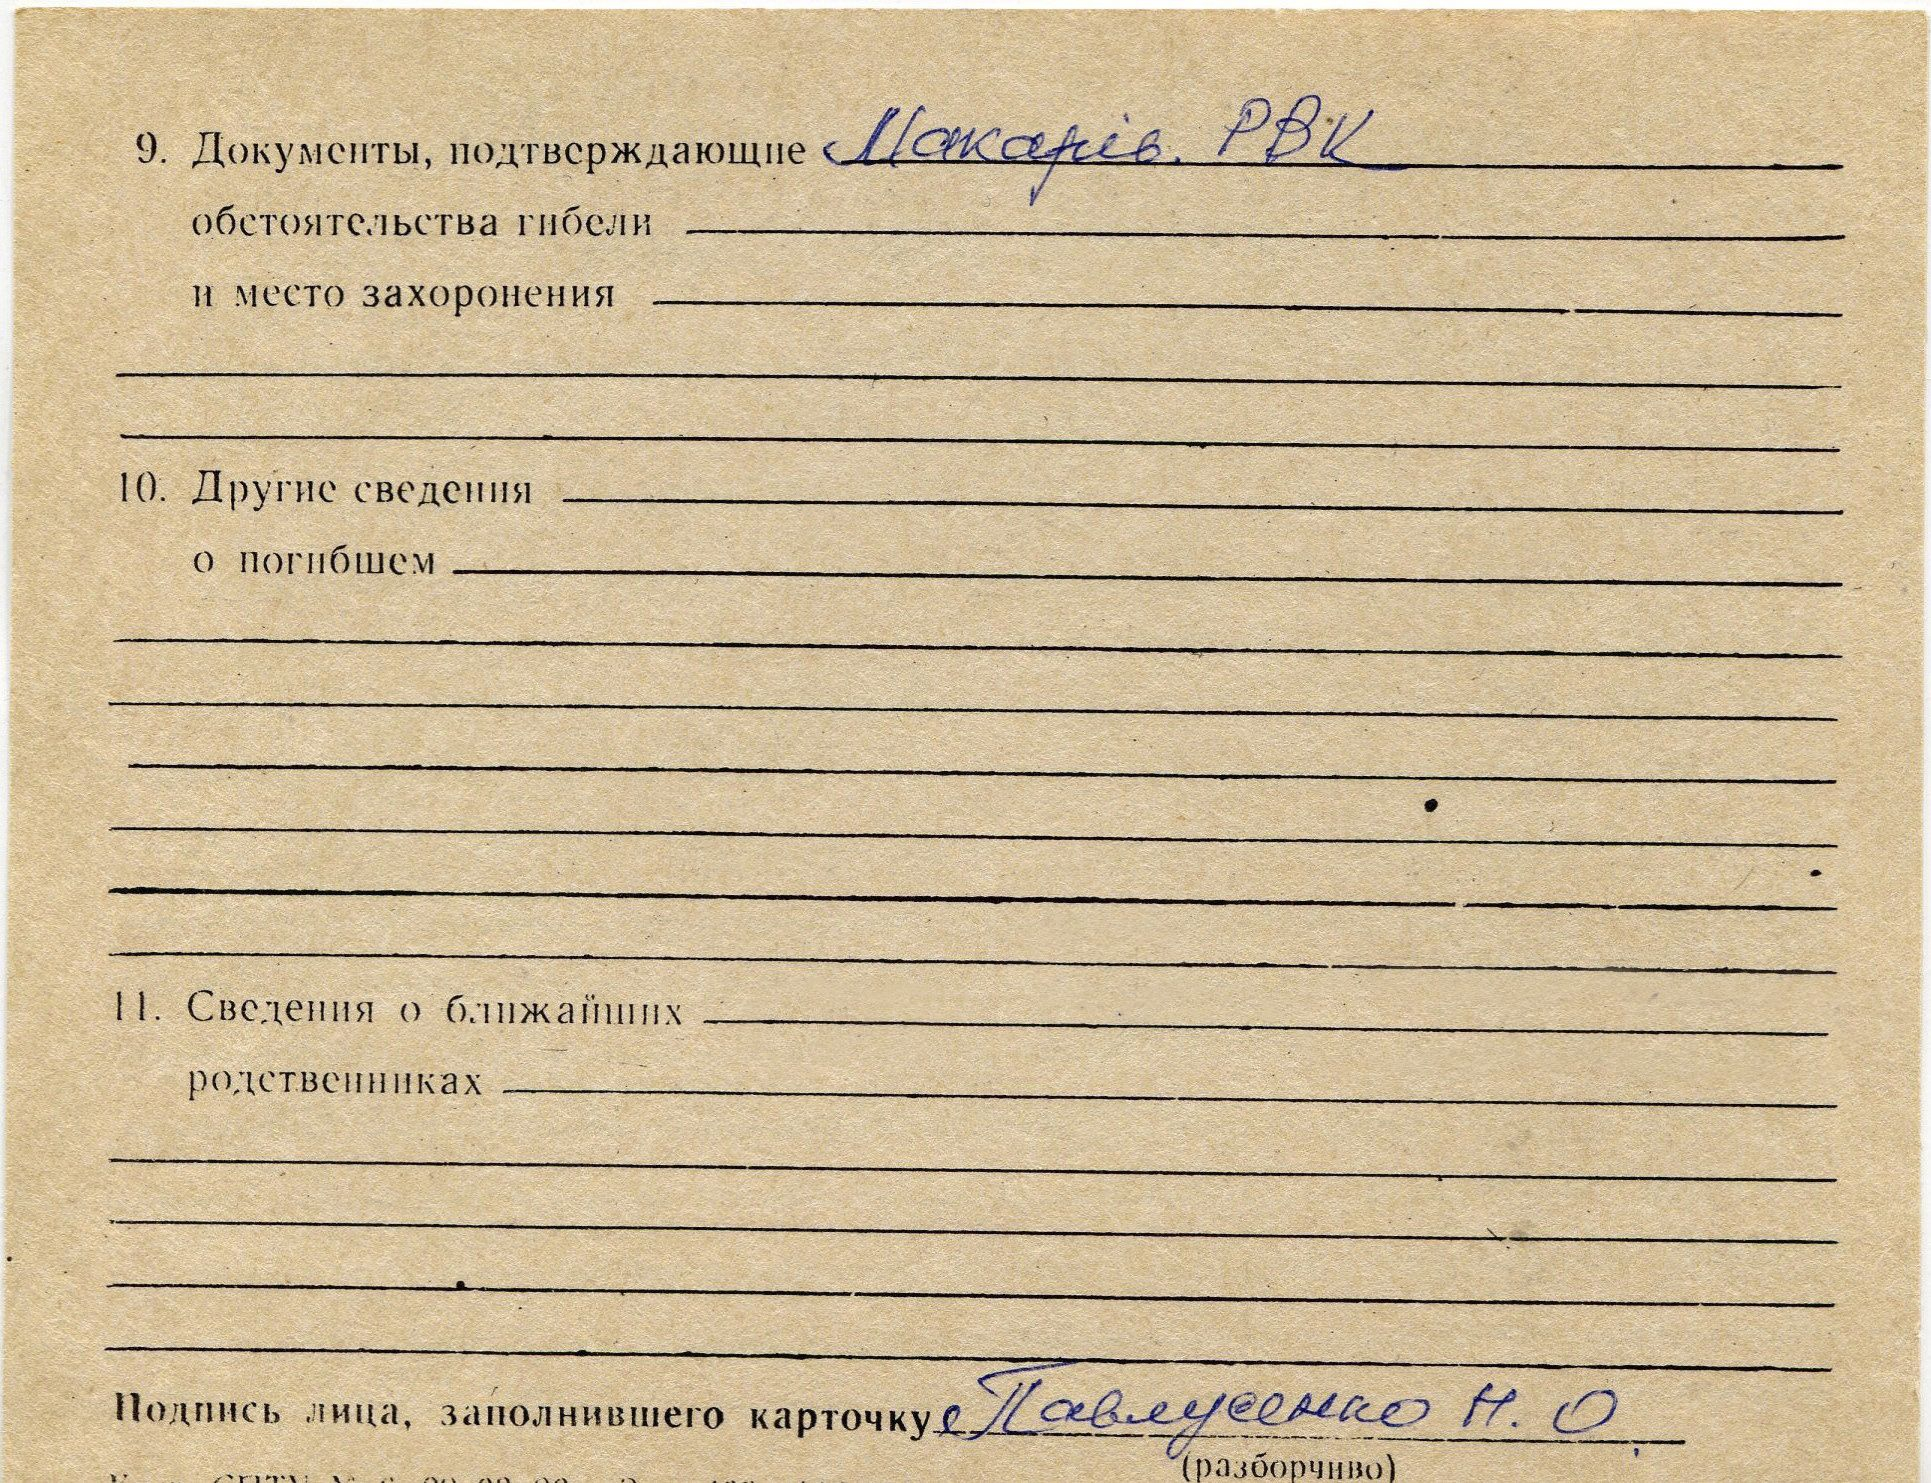 9. Документы, подтверждающие Макарів. РВК
обстоятельства гибели
и место захоронения
10. Другие сведения
о погибшем
11. Сведения о ближайших
родственниках
Подпись лица, заполнившего карточку Павлусенко Н. О.
(разборчиво)